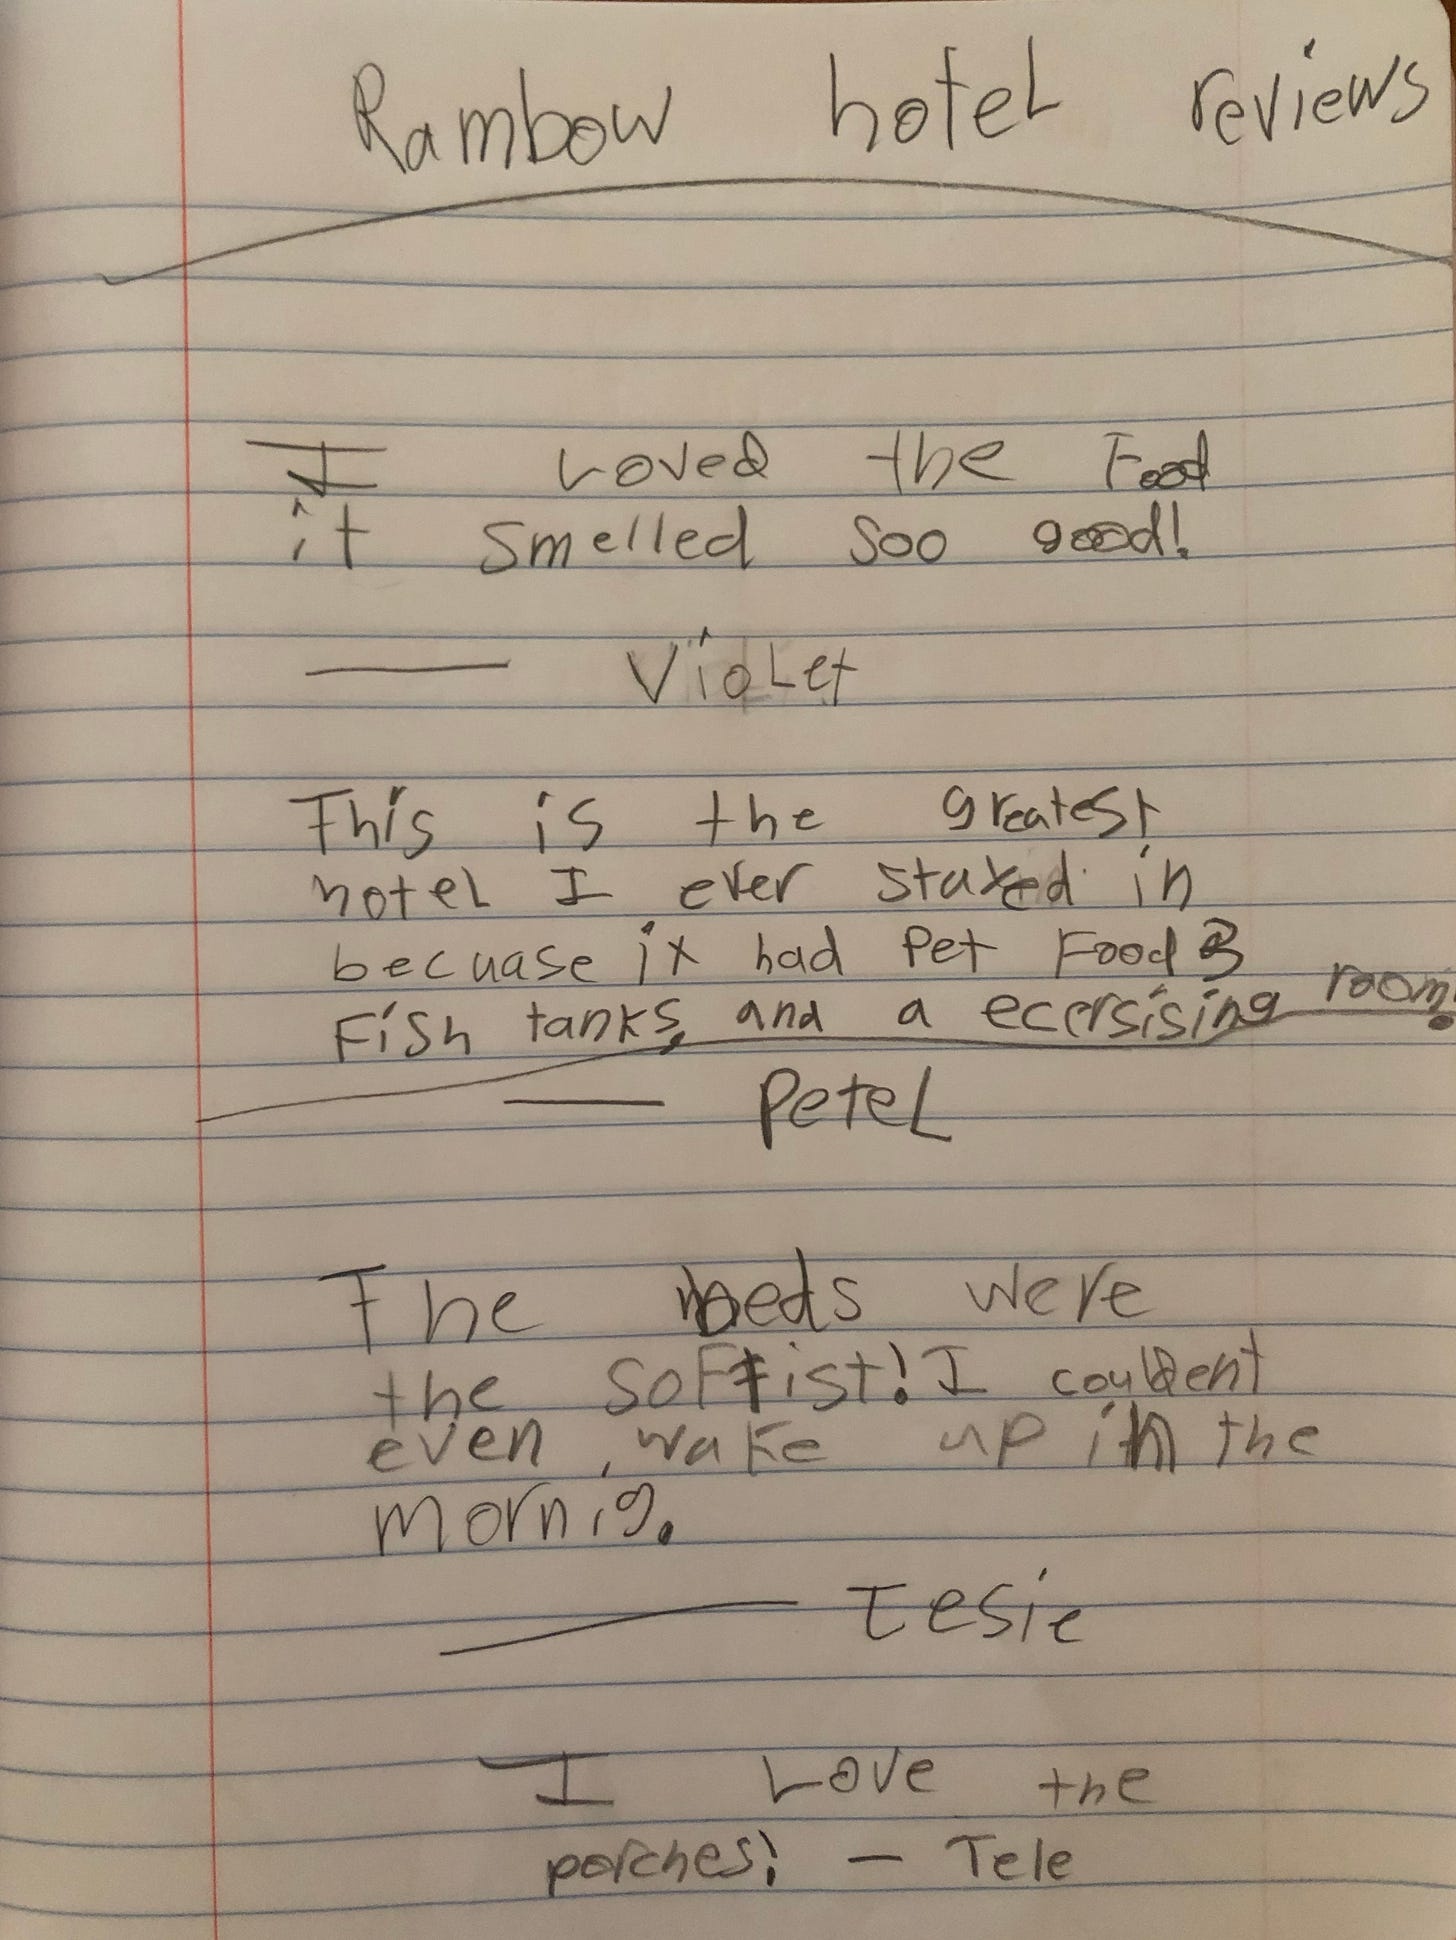 Rambow hotel reviews
I Loved the Food
it smelled soo good!
— VioLet
This is the greatest
hotel I ever stayed in
becuase it had Pet Food
Fish tanks, and a ecersising room.
— PeteL
The beds were
the softist! I couldent
even wake up in the
mornig.
— Tesie
I Love the
porches! — Tele